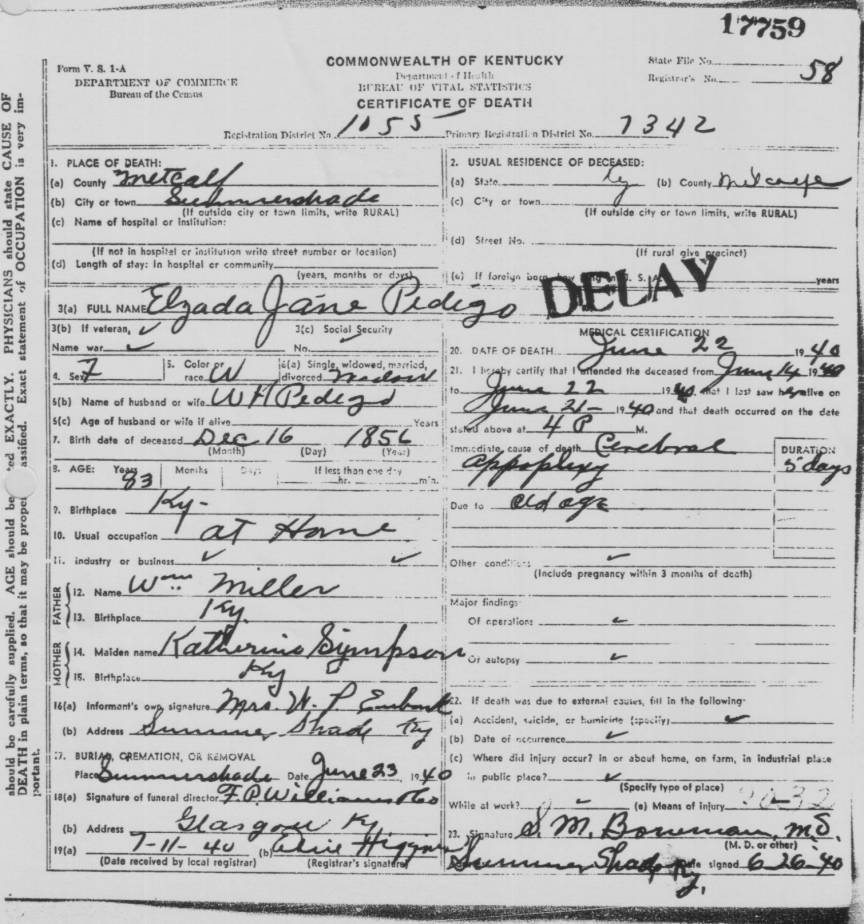 17759
Form V. S. 1-A
DEPARTMENT OF COMMERCE
Bureau of the Census
COMMONWEALTH OF KENTUCKY
Department of Health
BUREAU OF VITAL STATISTICS
CERTIFICATE OF DEATH
State File No.
Registrar's No. 58
Registration District No. 1055 Primary Registration District No. 7342
1. PLACE OF DEATH:
(a) County Metcalf
(b) City or town Summershade
(If outside city or town limits, write RURAL)
(c) Name of hospital or institution:
(If not in hospital or institution write street number or location)
(d) Length of stay: In hospital or community
(years, months or days)
2. USUAL RESIDENCE OF DECEASED:
(a) State Ky (b) County Metcalfe
(c) City or town
(If outside city or town limits, write RURAL)
(d) Street No.
(If rural give precinct)
(e) If foreign born, how long in U. S. A. years
DELAY
3(a) FULL NAME Elzada Jane Pedigo
3(b) If veteran, ✓
Name war ✓
3(c) Social Security
No. ✓
4. Sex F
5. Color or
race W
6(a) Single, widowed, married,
divorced Widow
6(b) Name of husband or wife W H Pedigo
6(c) Age of husband or wife if alive Years
7. Birth date of deceased Dec 16 1856
(Month) (Day) (Year)
8. AGE: Years Months Days If less than one day
83 hr. min.
9. Birthplace Ky-
10. Usual occupation at Home
11. Industry or business ✓ ✓
FATHER
12. Name Wm Miller
13. Birthplace Ky.
MOTHER
14. Maiden name Katherine Sympson
15. Birthplace Ky
16(a) Informant's own signature Mrs. W. P Eubank
(b) Address Summer Shade Ky
17. BURIAL, CREMATION, OR REMOVAL
Place Summershade Date June 23, 1940
18(a) Signature of funeral director F. P. Williams & Co
(b) Address Glasgow Ky
19(a) 7-11-40 (b) Higgins
(Date received by local registrar) (Registrar's signature)
MEDICAL CERTIFICATION
20. DATE OF DEATH June 22 1940
21. I hereby certify that I attended the deceased from June 14 1940
to June 22 1940, that I last saw her alive on
June 21- 1940 and that death occurred on the date
stated above at 4 P M.
Immediate cause of death Cerebral
Appoplexy
DURATION
5 days
Due to old age
Other conditions ✓
(Include pregnancy within 3 months of death)
Major findings
Of operations ✓
Of autopsy ✓
22. If death was due to external causes, fill in the following:
(a) Accident, suicide, or homicide (specify) ✓
(b) Date of occurrence ✓
(c) Where did injury occur? In or about home, on farm, in industrial place
in public place? ✓
(Specify type of place)
While at work? (e) Means of injury
23. Signature S. M. Bowman, M.D.
(M. D. or other)
Summer Shade Ky. Date signed 6-26-40
should be carefully supplied. AGE should be EXACTLY. PHYSICIANS should state CAUSE OF
DEATH in plain terms, so that it may be proper assified. Exact statement of OCCUPATION is very im-
portant.